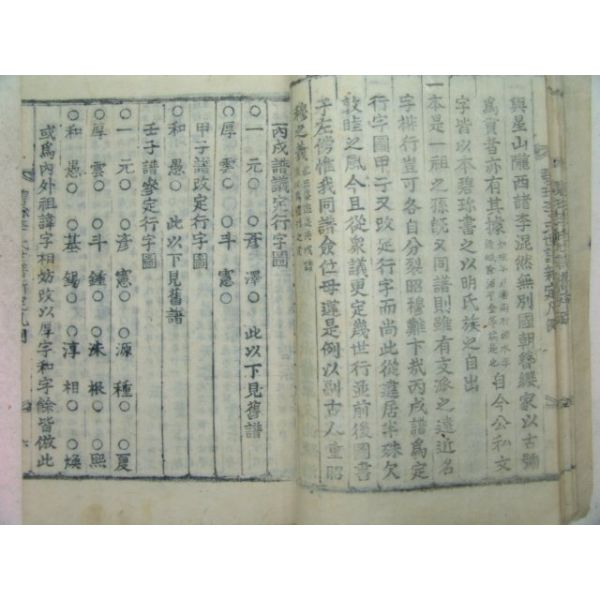 與星山隴西諸李混然無別國朝簪纓家以古號
爲貫昔亦有其據
自今公私文
字皆以本碧珍書之以明氏族之自出
一本是一祖之孫旣又同譜則雖有支派之遠近名
字排行豈可各自分裂昭穆難下哉丙戌譜爲定
行字圖甲子又改延行字而尚此從違居半殊欠
敦睦之風今且從衆議更定幾世行並前後圖書
于左傍惟我同譜僉位毋違是例以副古人重昭
穆之義
丙戌譜議定行字圖
○一 元○ ○彦 澤○ 此以下見舊譜
○厚 雲○ ○斗 憲○
甲子譜改定行字圖
○和 愚○ 此以下見舊譜
壬子譜參定行字圖
○一 元○ ○彦 憲○ ○源 種○ ○夏
○厚 雲○ ○斗 鍾○ ○洙 根○ ○熙
○和 愚○ ○基 錫○ ○淳 相○ ○煥
或爲內外祖諱字相妨改以厚字和字餘皆倣此